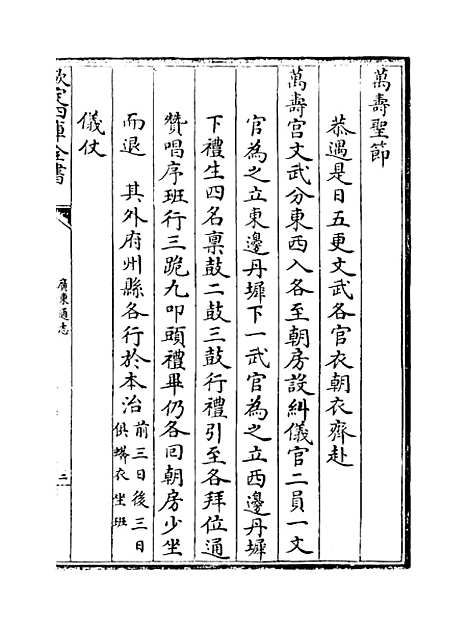 萬壽聖節
恭遇是日五更文武各官衣朝衣齊赴
萬壽宮文武分東西入各至朝房設糾儀官二員一文
官為之立東邊丹墀下一武官為之立西邊丹墀
下禮生四名稟鼓二鼓三鼓行禮引至各拜位通
贊唱序班行三跪九叩頭禮畢仍各回朝房少坐
而退　其外府州縣各行於本治前三日後三日
俱蟒衣坐班
儀仗
欽定四庫全書
廣東通志
三